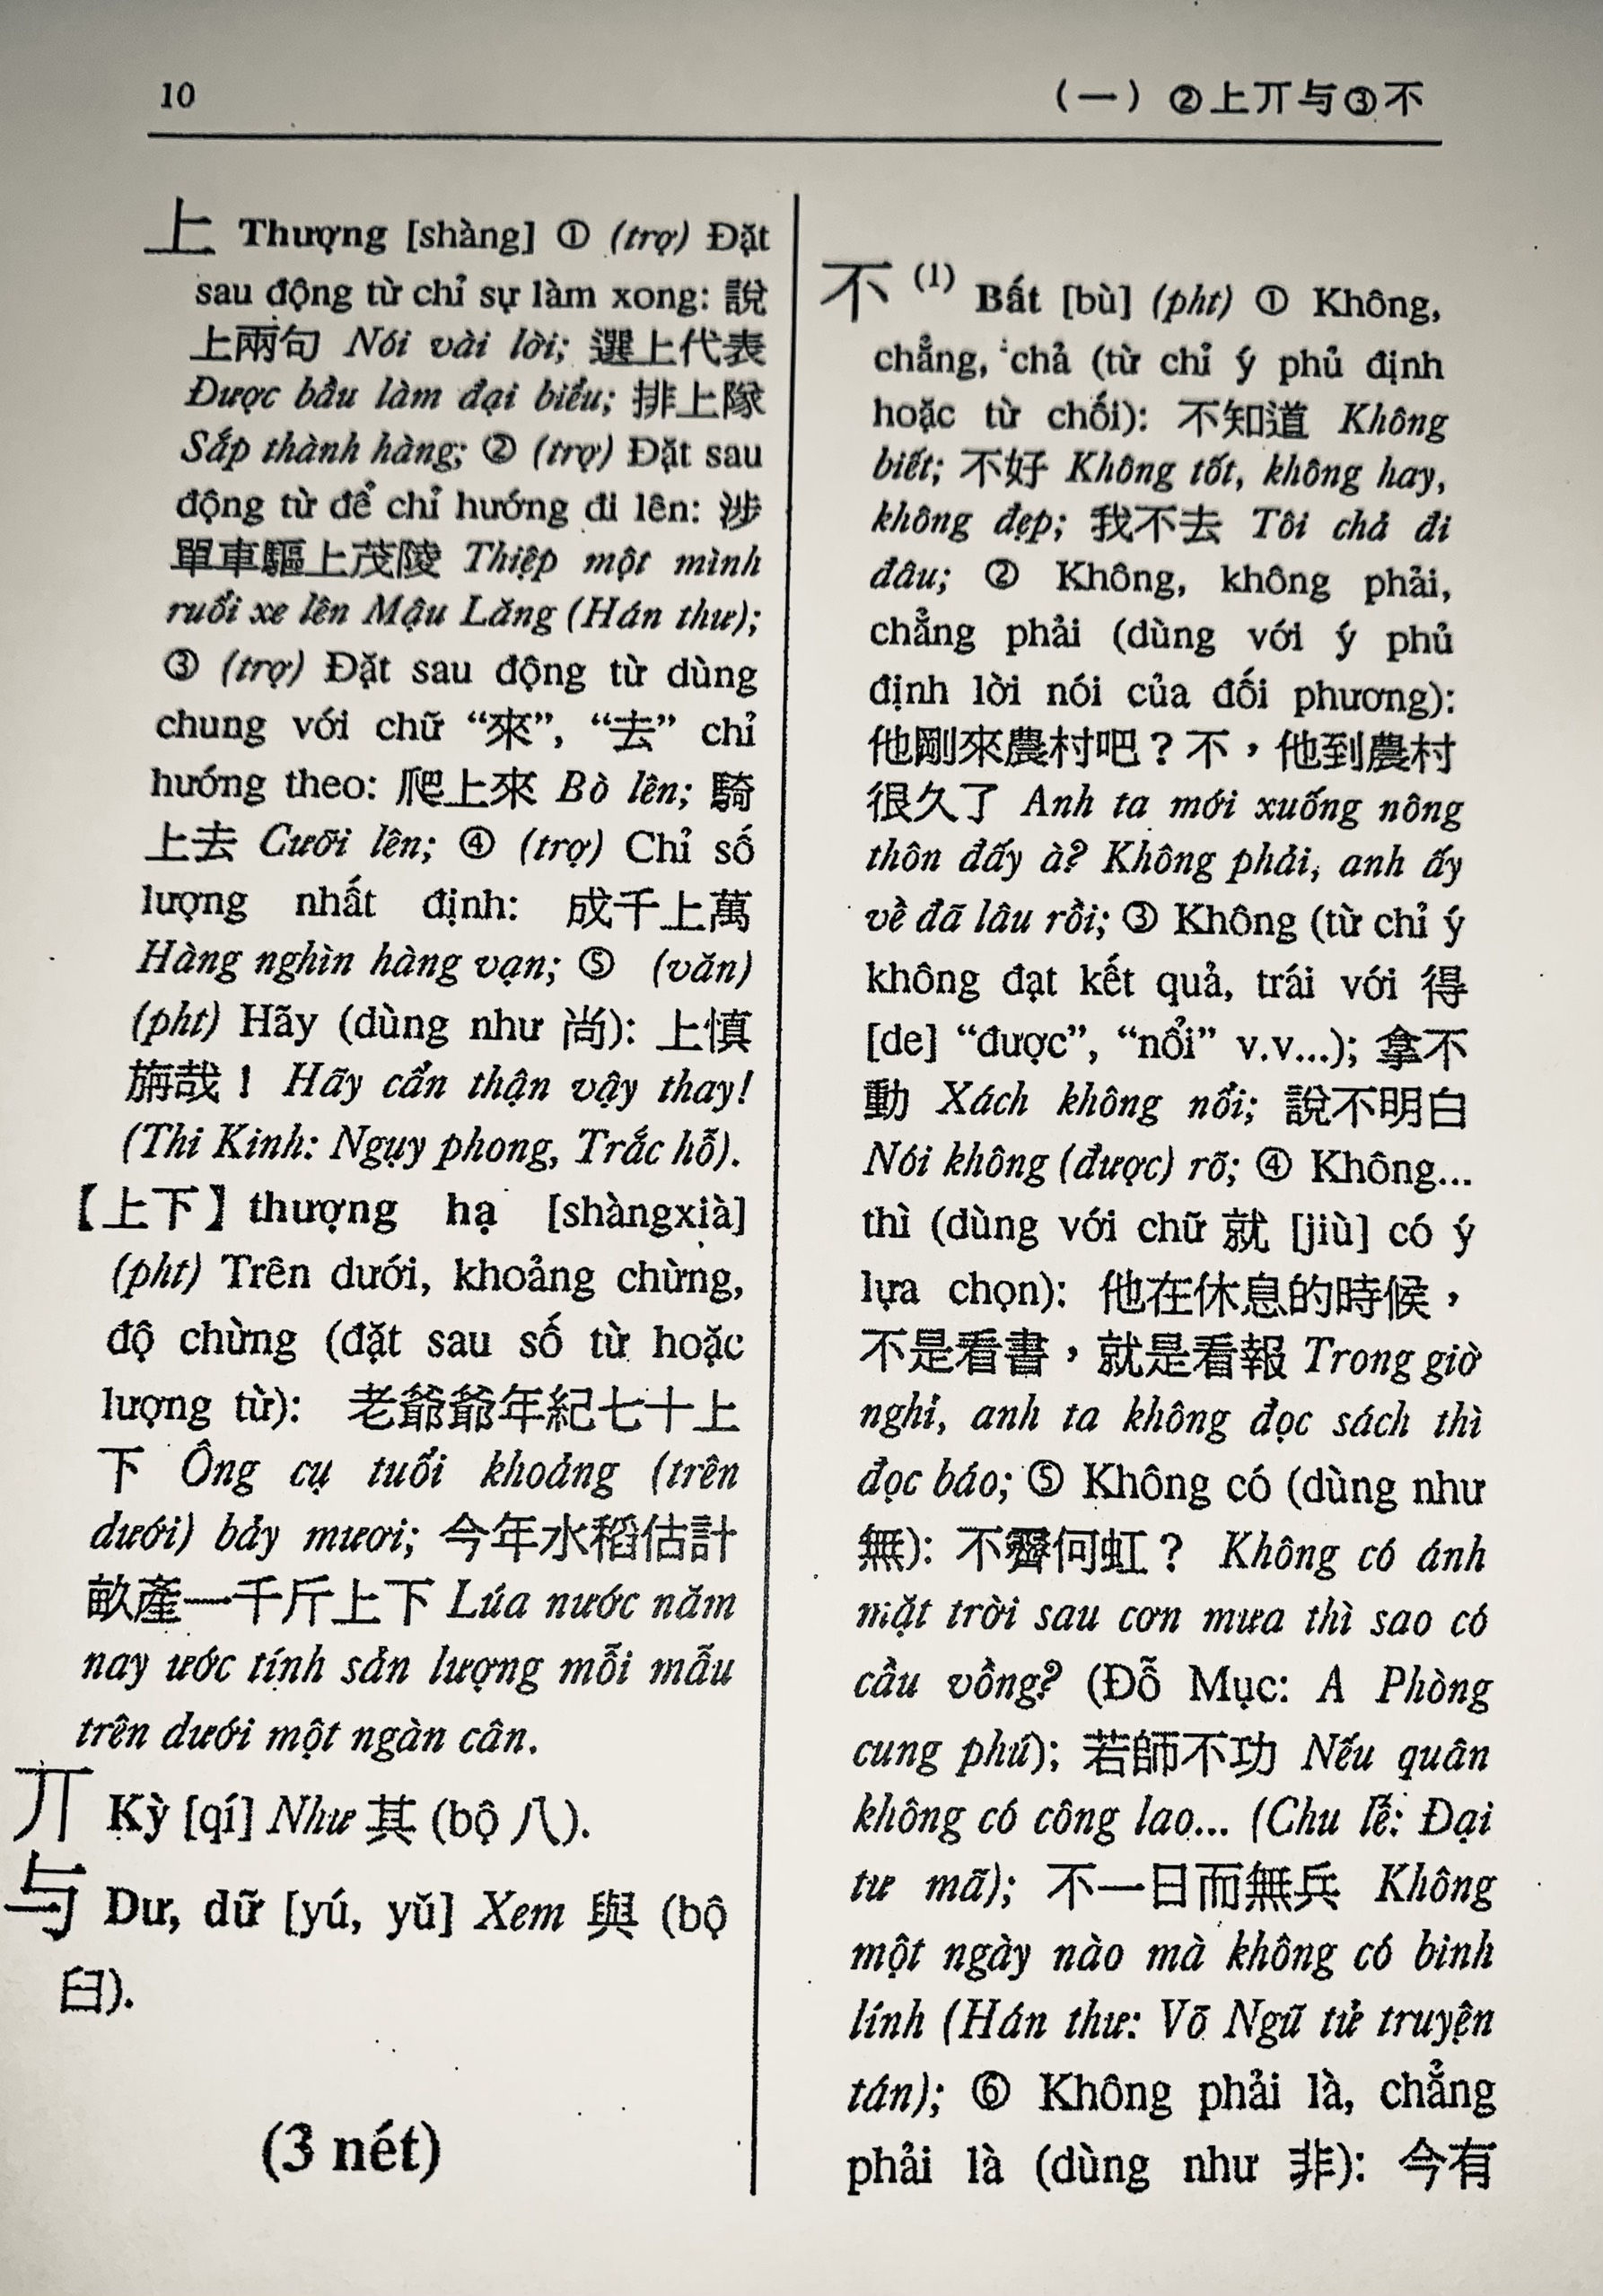 10
(一) ②上丌与③不
上 Thượng [shàng] ① (trợ) Đặt
sau động từ chỉ sự làm xong: 說
上兩句 Nói vài lời; 選上代表
Được bầu làm đại biểu; 排上隊
Sắp thành hàng; ② (trợ) Đặt sau
động từ để chỉ hướng đi lên: 涉
單車驅上茂陵 Thiệp một mình
ruổi xe lên Mậu Lăng (Hán thư);
③ (trợ) Đặt sau động từ dùng
chung với chữ “來”, “去” chỉ
hướng theo: 爬上來 Bò lên; 騎
上去 Cưỡi lên; ④ (trợ) Chỉ số
lượng nhất định: 成千上萬
Hàng nghìn hàng vạn; ⑤ (văn)
(pht) Hãy (dùng như 尚): 上慎
旃哉！ Hãy cẩn thận vậy thay!
(Thi Kinh: Ngụy phong, Trắc hỗ).
【上下】thượng hạ [shàngxià]
(pht) Trên dưới, khoảng chừng,
độ chừng (đặt sau số từ hoặc
lượng từ): 老爺爺年紀七十上
下 Ông cụ tuổi khoảng (trên
dưới) bảy mươi; 今年水稻估計
畝產一千斤上下 Lúa nước năm
nay ước tính sản lượng mỗi mẫu
trên dưới một ngàn cân.
丌 Kỳ [qí] Như 其 (bộ 八).
与 Dư, dữ [yú, yǔ] Xem 與 (bộ
臼).
(3 nét)
不 (1) Bất [bù] (pht) ① Không,
chẳng, chả (từ chỉ ý phủ định
hoặc từ chối): 不知道 Không
biết; 不好 Không tốt, không hay,
không đẹp; 我不去 Tôi chả đi
đâu; ② Không, không phải,
chẳng phải (dùng với ý phủ
định lời nói của đối phương):
他剛來農村吧？不，他到農村
很久了 Anh ta mới xuống nông
thôn đấy à? Không phải, anh ấy
về đã lâu rồi; ③ Không (từ chỉ ý
không đạt kết quả, trái với 得
[de] “được”, “nổi” v.v...); 拿不
動 Xách không nổi; 說不明白
Nói không (được) rõ; ④ Không...
thì (dùng với chữ 就 [jiù] có ý
lựa chọn): 他在休息的時候，
不是看書，就是看報 Trong giờ
nghỉ, anh ta không đọc sách thì
đọc báo; ⑤ Không có (dùng như
無): 不霽何虹？ Không có ánh
mặt trời sau cơn mưa thì sao có
cầu vồng? (Đỗ Mục: A Phòng
cung phú); 若師不功 Nếu quân
không có công lao... (Chu lễ: Đại
tư mã); 不一日而無兵 Không
một ngày nào mà không có binh
lính (Hán thư: Võ Ngũ tử truyện
tán); ⑥ Không phải là, chẳng
phải là (dùng như 非): 今有